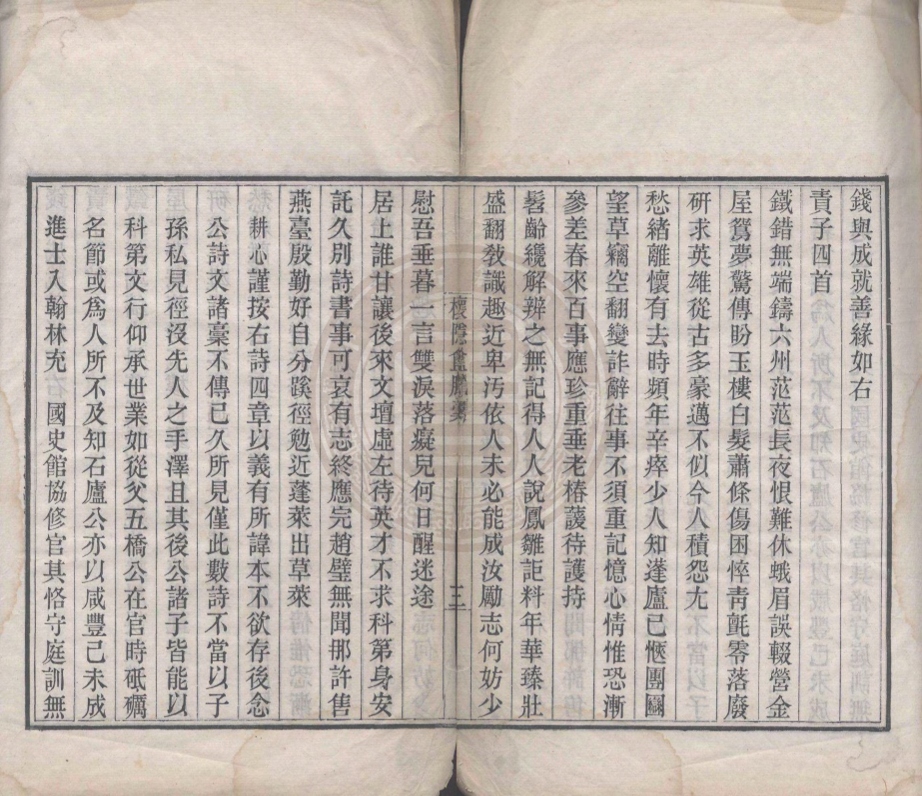 錢與成就善緣如右
責子四首
鐵錯無端鑄六州范范長夜恨難休蛾眉誤輟營金
屋鴛夢驚傳盼玉樓白髮蕭條傷困悴靑氈零落廢
硏求英雄從古多豪邁不似今人積怨尢
愁緒離懷有去時頻年辛瘁少人知蓬廬已愜團圞
望草竊空翻變詐辭往事不須重記憶心情惟恐漸
參差春來百事應珍重垂老椿萲待護持
髫齡纔解辨之無記得人人說鳳雛詎料年華臻壯
盛翻敎識趣近卑汚依人未必能成汝勵志何妨少
慰吾垂暮一言雙淚落癡兒何日醒迷途
三
居上誰甘讓後來文壇虛左待英才不求科第身安
託久別詩書事可哀有志終應完趙璧無聞那許售
燕臺殷勤好自分蹊徑勉近蓬萊出草萊
耕心謹按右詩四章以義有所諱本不欲存後念
公詩文諸稾不傳已久所見僅此數詩不當以子
孫私見徑沒先人之手澤且其後公諸子皆能以
科第文行仰承世業如從父五橋公在官時砥礪
名節或爲人所不及知石廬公亦以咸豐己未成
進士入翰林充 國史館協修官其恪守庭訓無